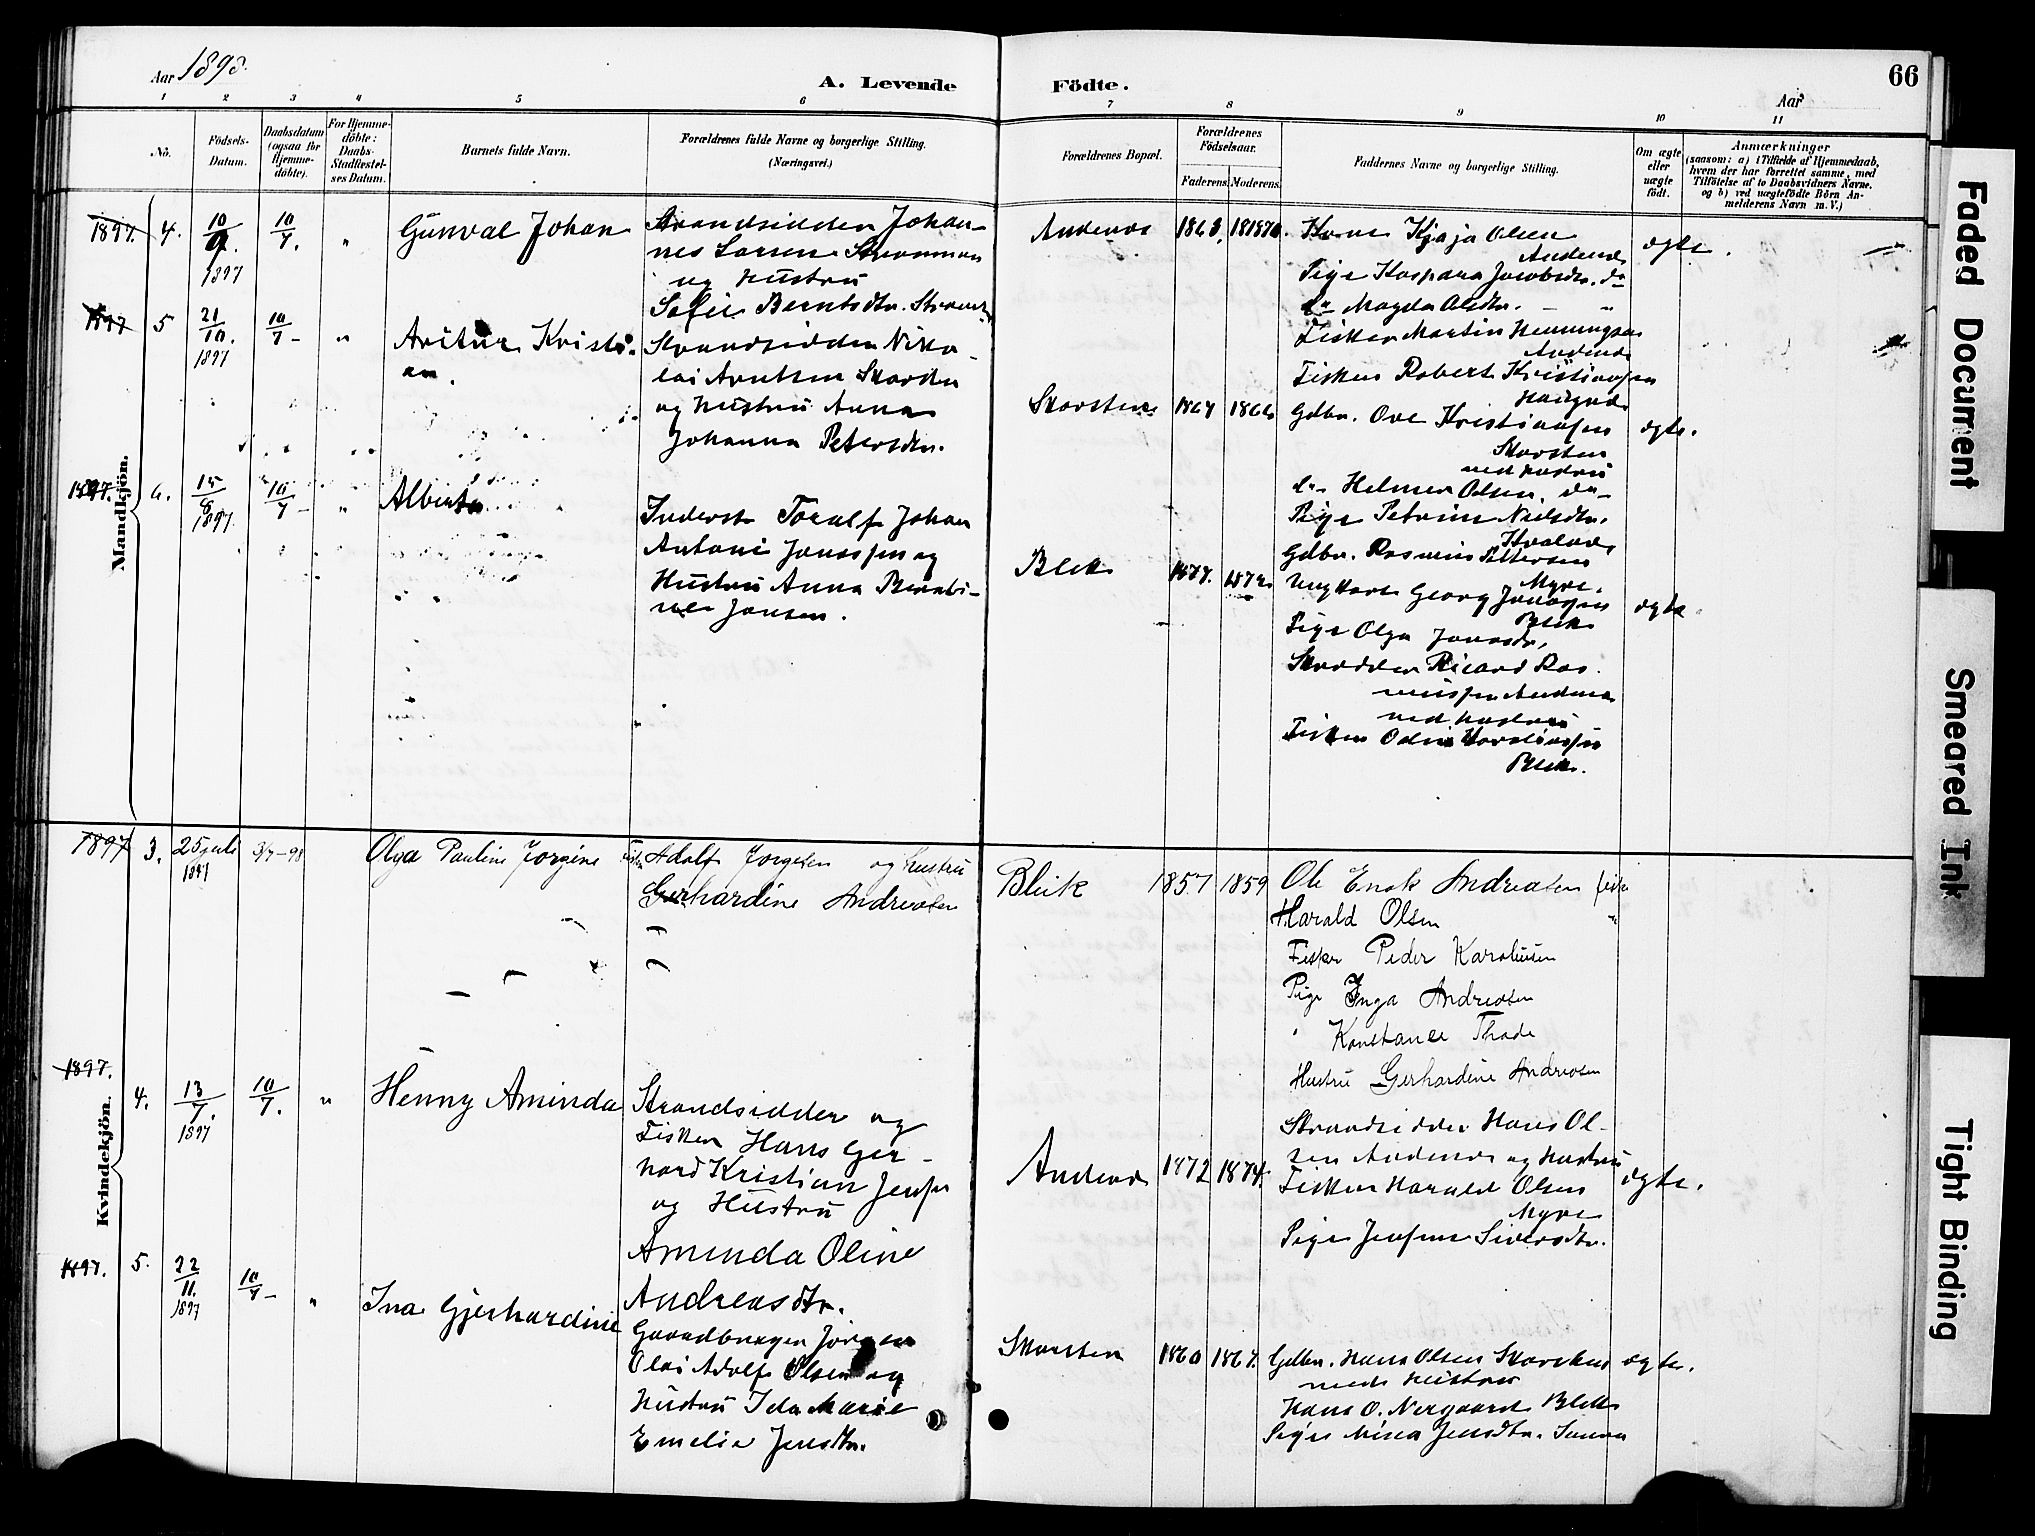 Aar 1898.
A. Levende
Födte.
66
Aar
1 2 3 4 5 6 7 8 9 10 11
No.
Födsels-
Datum.
Daabsdatum
(ogsaa for
Hjemme-
döbte).
For Hjemme-
döbte:
Daabs-
Stadfæstel-
ses Datum.
Barnets fulde Navn.
Forældrenes fulde Navne og borgerlige Stilling.
(Næringsvei.)
Forældrenes Bopæl.
Forældrenes
Födselsaar.
Faderens. Moderens.
Faddernes Navne og borgerlige Stilling.
Om ægte
eller
uægte
født.
Anmærkninger
(saasom: a) i Tilfælde af Hjemmedaab,
hvem der har forrettet samme, med
Tilföielse af to Daabsvidners Navne.
og b) ved uægtefödte Börn An-
melderens Navn m. V.)
Mandkjön.
1897. 4. 10/9. 1897 10/7. " Gunval Johan
Strandsidder Johan-
nes Larsen
og Hustru
Sofie Berntsdtr.
Andenes 1868.
Kone Kjaja Olsen
Andenes
Pige Kaspara Jacobsdtr. do
do Magda Olsdtr. - "
Fisker Martin Henningsen
Andenes
Fisker Robert Kristiansen
ægte.
1897 5 21/10. 1897 10/7 - " Artur Kristi-
an.
Strandsidder Niko-
lai Arntsen Skarsten
og Hustru Anna
Johanna Petersdtr.
Skarsten 1864 1866
Gdbr. Ove Kristiansen
Skarsten
med Hustru
do Helmer Olsen. do -
Pige Petrine Nielsdtr.
Gdbr. Rasmus Pettersen
Myre.
ægte.
1897. 6. 15/8 1897. 10/7 - " Alberta
Inderst Toralf Johan
Antoni Jonassen og
Hustru Anna Bernti-
ne Jonsen.
Bleik 1877. 1872
Ungkarl Georg Jonassen
Bleik
Pige Olga Jonasdtr,
Skrædder Ricard Ras
mussen Andenes
med Hustru
Fisker Odin
Bleik.
ægte
Kvindekjön.
1897 3. 25 juli 1897 3/7-98 Olga Pauline Jorgine
Fisker Adolf Jorgensen og hustru
Gerhardine Andreasen
Bleik 1857 1859
Ole Enok Andreasen fisker
Harald Olsen "
Fisker Peder Karoliusen
Pige Inga Andreasen
" Konstance Thode
Hustru Gerhardine Andreasen
1897. 4. 13/7. 1897 10/7. " Henny Aminda
Strandsidder og
Fisker Hans Ger-
hard Kristian Jensen
og Hustru
Aminda Oline
Andreasdtr.
Andenes 1872 1874.
Strandsidder Hans Ol-
sen Andenes og Hustru
Fisker Harald Olsen
Myre
Pige Jensine Siversdtr.
ægte.
1897. 5. 22/11. 1897 10/7 - " Ina Gjerhardine
Gaardbruger Jörgen
Olai Adolf Olsen og
Hustru Ida Marie
Emelie Jensdtr.
Skarsten 1860 1867.
Gdbr. Hans Olsen Skarsten
med Hustru
Hans O. Norgaard Bleik
Pige Nina Jensdtr.
ægte.
Faded Document
Smeared Ink
Tight Binding